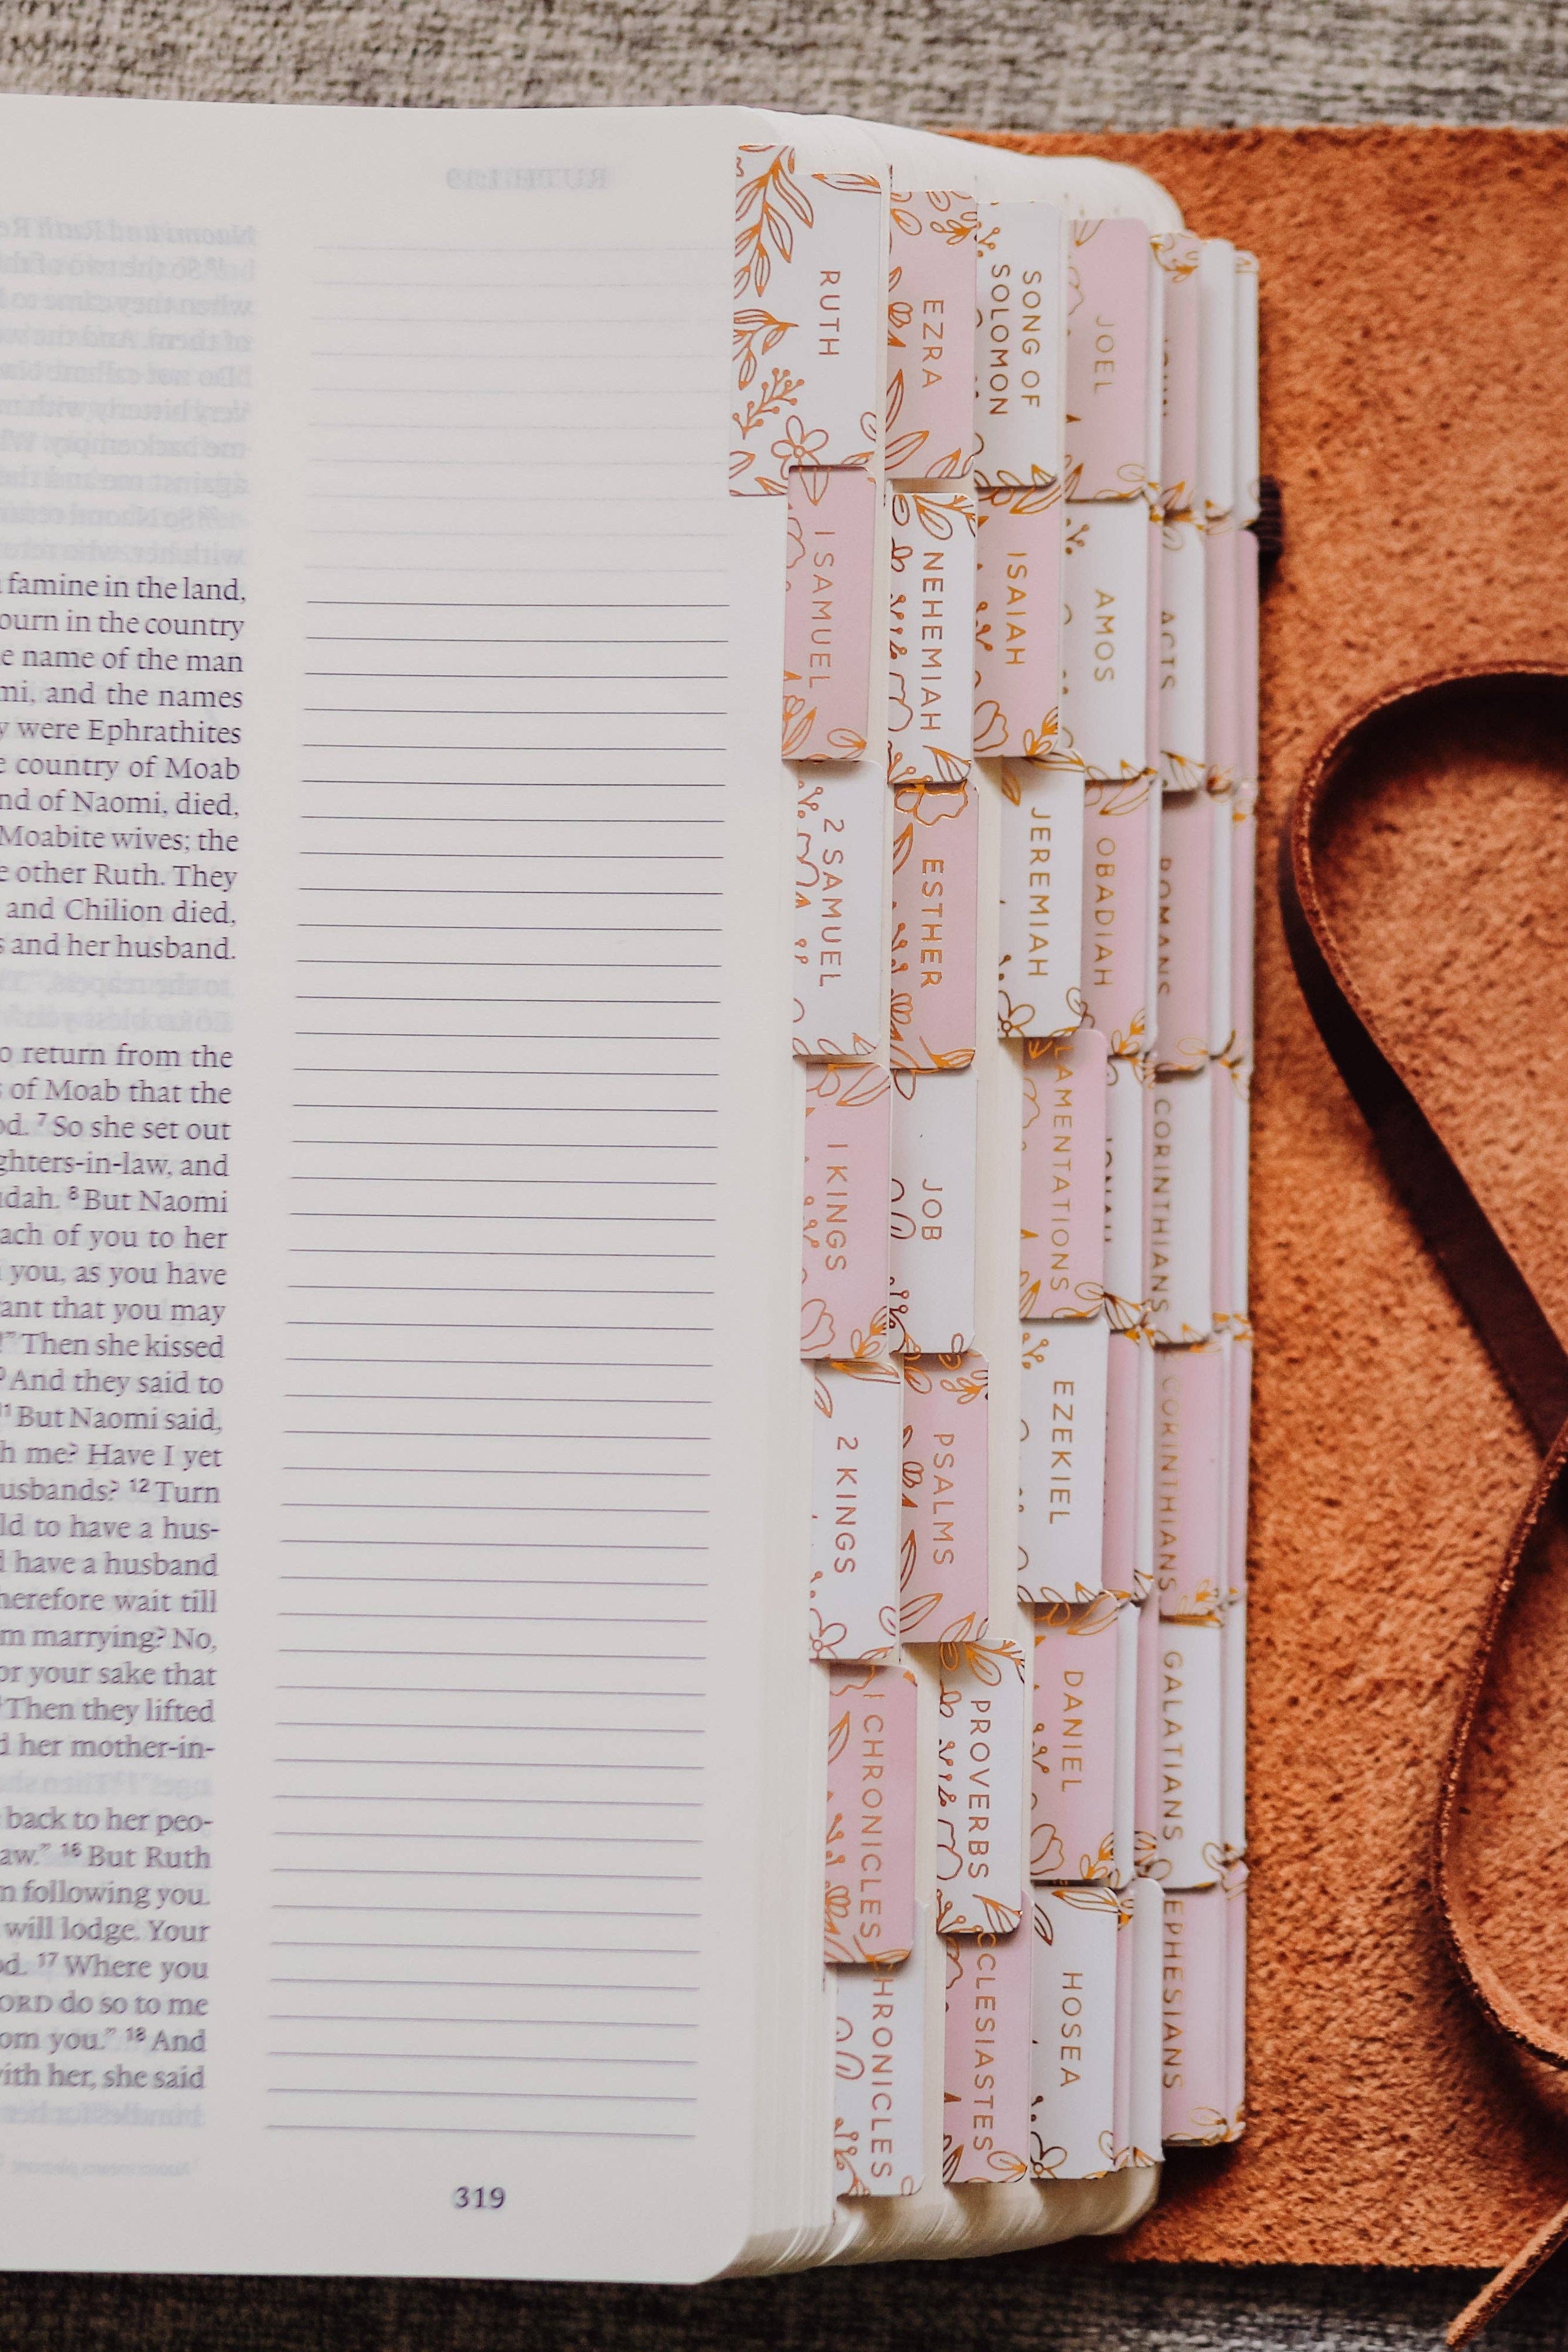 famine in the land,
in the country
name of the man
and the names
were Ephrathites
country of Moab
of Naomi, died,
Moabite wives; the
other Ruth. They
and Chilion died,
and her husband.
return from the
of Moab that the
7 So she set out
and
8 But Naomi
of you to her
you, as you have
that you may
Then she kissed
And they said to
11 But Naomi said,
me? Have I yet
12 Turn
to have a hus-
have a husband
wait till
marrying? No,
your sake that
Then they lifted
her mother-in-
back to her peo-
16 But Ruth
following you.
will lodge. Your
17 Where you
do so to me
you.” 18 And
her, she said
319
RUTH
1 SAMUEL
2 SAMUEL
1 KINGS
2 KINGS
1 CHRONICLES
CHRONICLES
EZRA
NEHEMIAH
ESTHER
JOB
PSALMS
PROVERBS
CLESIASTES
SONG OF
SOLOMON
ISAIAH
JEREMIAH
LAMENTATIONS
EZEKIEL
DANIEL
HOSEA
JOEL
AMOS
OBADIAH
JONAH
JOHN
ACTS
ROMANS
CORINTHIANS
CORINTHIANS
GALATIANS
EPHESIANS